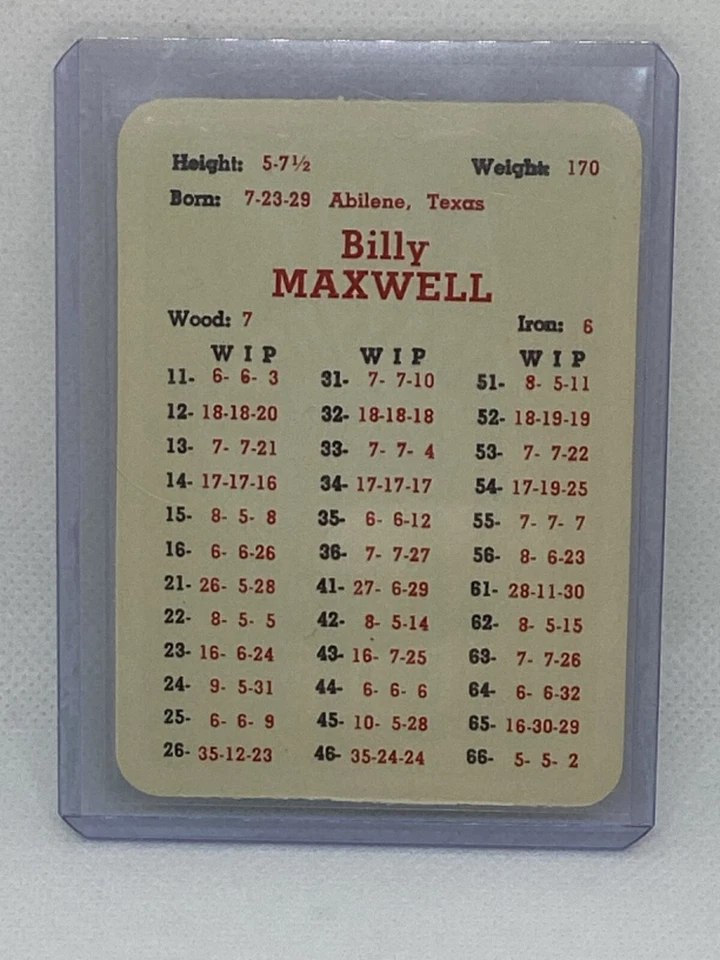 Height: 5-7½ Weight: 170
Born: 7-23-29 Abilene, Texas
Billy
MAXWELL
Wood: 7 Iron: 6
W I P W I P W I P
11- 6- 6- 3 31- 7- 7-10 51- 8- 5-11
12- 18-18-20 32- 18-18-18 52- 18-19-19
13- 7- 7-21 33- 7- 7- 4 53- 7- 7-22
14- 17-17-16 34- 17-17-17 54- 17-19-25
15- 8- 5- 8 35- 6- 6-12 55- 7- 7- 7
16- 6- 6-26 36- 7- 7-27 56- 8- 6-23
21- 26- 5-28 41- 27- 6-29 61- 28-11-30
22- 8- 5- 5 42- 8- 5-14 62- 8- 5-15
23- 16- 6-24 43- 16- 7-25 63- 7- 7-26
24- 9- 5-31 44- 6- 6- 6 64- 6- 6-32
25- 6- 6- 9 45- 10- 5-28 65- 16-30-29
26- 35-12-23 46- 35-24-24 66- 5- 5- 2